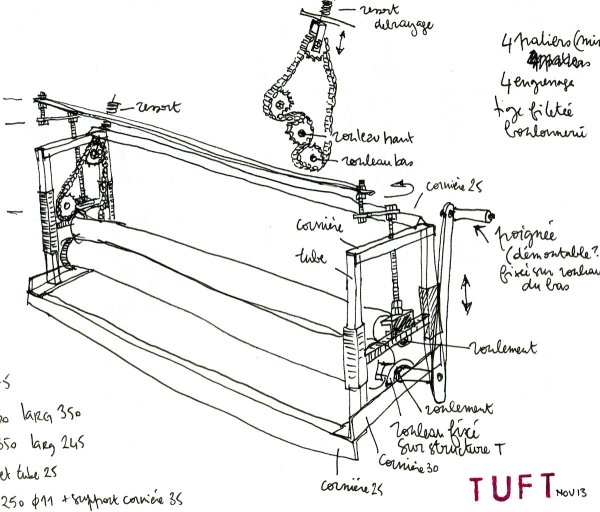 ressort
debrayage
4 paliers (min
4 engrenage
tige filetée
boulonnerie
ressort
rouleau haut
rouleau bas
cornière 25
cornière
tube
poignée
(démontable ?
fixé sur rouleau
du bas
roulement
roulement
rouleau fixé
sur structure T
cornière 30
cornière 25
larg 350
350 larg 245
et tube 25
250 φ11 + support cornière 35
TUFT NOV 13